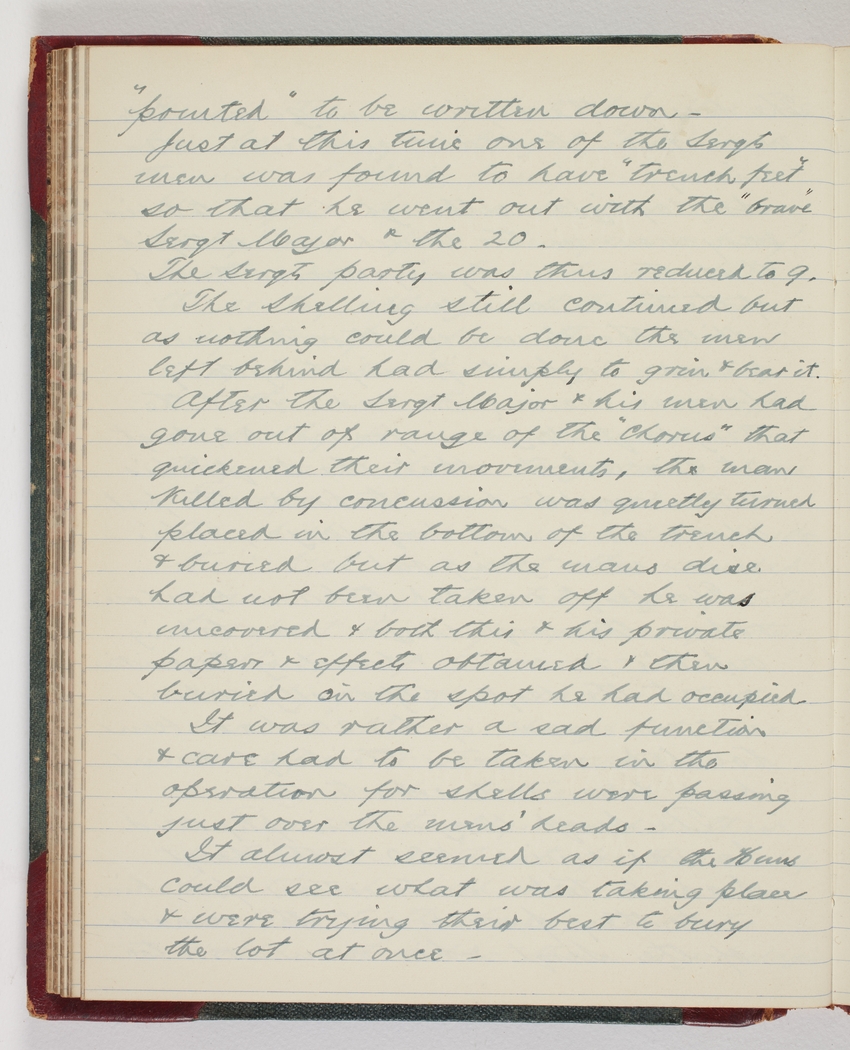 "pointed" to be written down -
Just at this time one of the Sergts
men was found to have "trench feet"
so that he went out with the "brave"
Sergt Major & the 20.
The Sergts party was thus reduced to 9.
The shelling still continued but
as nothing could be done the men
left behind had simply to grin & bear it.
After the Sergt Major & his men had
gone out of range of the "Chorus" that
quickened their movements, the man
killed by concussion was quietly turned
placed in the bottom of the trench
& buried but as the mans disc
had not been taken off he was
uncovered & both this & his private
papers & effects obtained & then
buried on the spot he had occupied
It was rather a sad function
& care had to be taken in the
operation for shells were passing
just over the mens' heads -
It almost seemed as if the Huns
could see what was taking place
& were trying their best to bury
the lot at once -